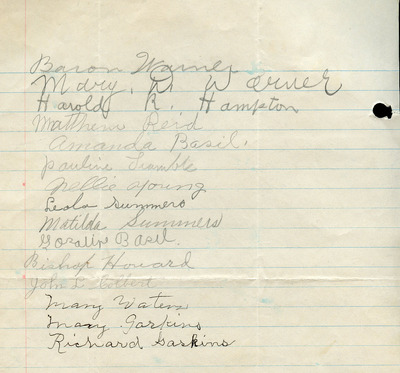 Baron Warner
Mary. W Warner
Harold R. Hampton
Matthew Reid
Amanda Basil.
Pauline Tramble
Nellie Young
Leola Summers
Matilda Summers
Basil.
Bishop Howard
John L.
Mary Waters
Mary Gaskins
Richard Gaskins